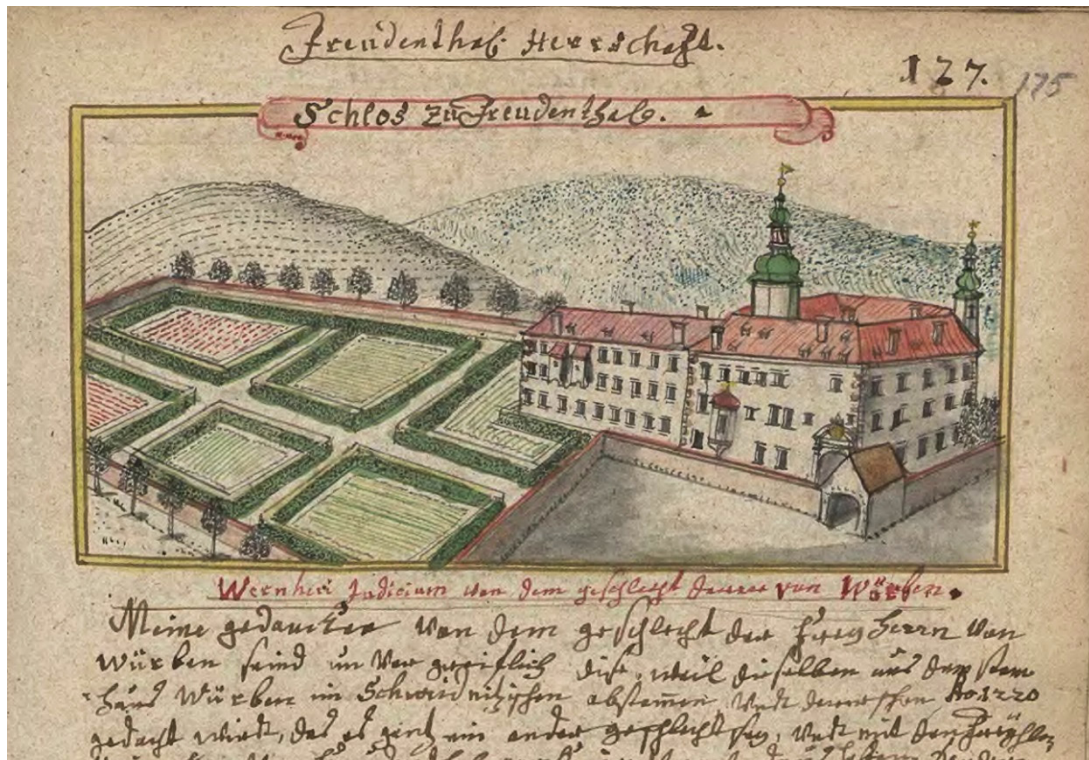 Freudenthal Herrschaft.
127. 175
Schlos zu Freudenthal.
Wernheri Judicium von dem geschlecht derer von Würben.
Meine gedancken von dem geschlecht der Frey Herrn von
Würben seind un dise, weil dieselben aus dem stam
haus Würben im Schweidnizischen abstamen, Ao 1220
gedacht wirdt, das es gantz ein ander geschlecht sey, mit den